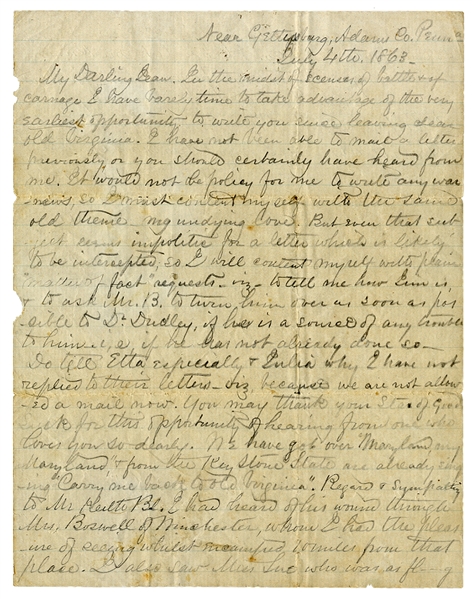 Near Gettysburg, Adams Co. Penna
July 4th. 1863.
My Darling Jean. In the midst of scenes of battle & of
carnage I have barely time to take advantage of the very
earliest opportunity to write you since leaving dear
old Virginia. I have not been able to mail a letter
previously or you should certainly have heard from
me. It would not be policy for me to write any war
news, so I must content myself with the same
old theme my undying love. But even that sub
ject seems impolitic for a letter which is likely
to be intercepted, so I will content myself with plain
"matter of fact" requests - viz - to tell me how Jim is,
& to ask Mr. B. to turn him over as soon as pos
sible to Dr. Dudley, if he is a source of any trouble
to him - i, e, if he has not already done so -
Do tell Etta especially & Julia why I have not
replied to their letters - viz because we are not allow
-ed a mail now. You may thank your Star of Good
Luck for this opportunity of hearing from one who
loves you so dearly. We have got over "Maryland my
Maryland," & from the Key Stone State are already sing
ing "Carry me back to old Virginia". Regard & Sympathy
to Mr Bl. I had heard of his wound through
Mrs. Boswell of Winchester, whom I had the pleas
ure of seeing whilst encamped, 20 miles from that
place. I also saw Miss Sue who was as